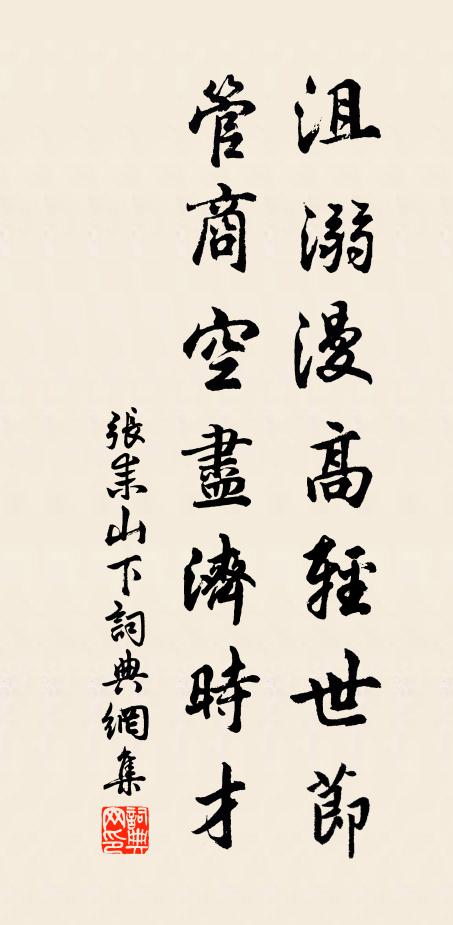 沮溺漫高輕世節
管商空盡濟時才
張耒山下詞典網集
詞典网印